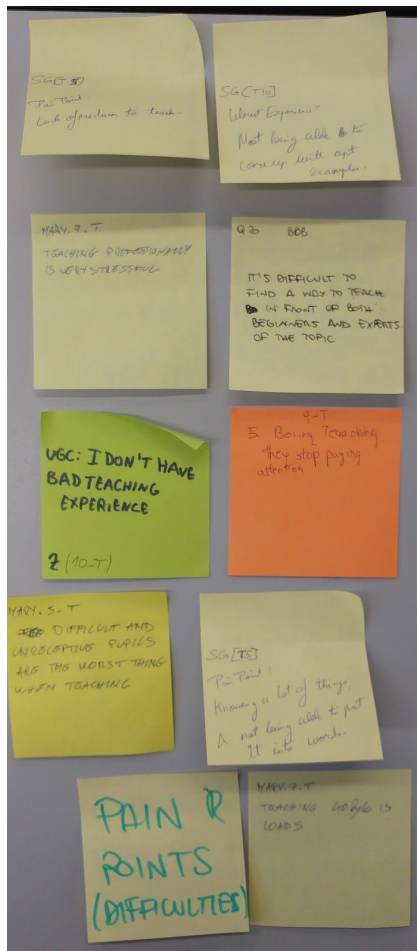 SG[T5]
Pain Point:
Lack of medium to teach.
SG[T10]
Worst Experience:
Not being able to
come up with apt
examples.
MARY.7.T
TEACHING PROFESSIONALLY
IS VERY STRESSFUL
Q20 BBB
IT'S DIFFICULT TO
FIND A WAY TO TEACH
IN FRONT OF BOTH
BEGINNERS AND EXPERTS
OF THE TOPIC
UGC: I DON'T HAVE
BAD TEACHING
EXPERIENCE
7 (10-T)
9-T
5. Boring Teaching
they stop paying
attention
MARY.5.T
DIFFICULT AND
UNRECEPTIVE PUPILS
ARE THE WORST THING
WHEN TEACHING
SG[T5]
Pain Point:
Knowing a lot of things,
& not being able to put
It into words.
PAIN
POINTS
(DIFFICULTIES)
MARY.7.T
TEACHING IS
LOADS